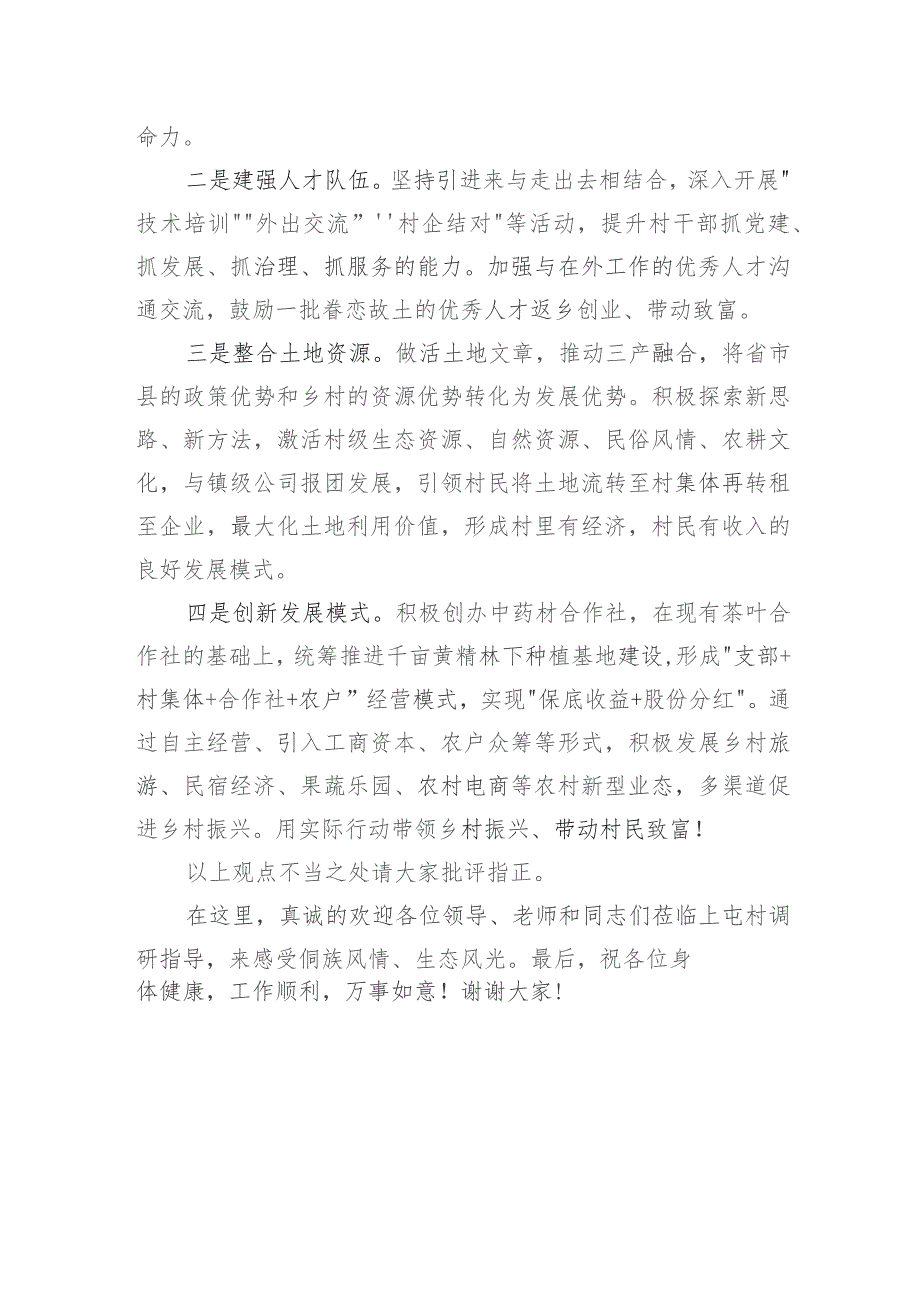 命力。
二是建强人才队伍。坚持引进来与走出去相结合，深入开展"
技术培训""外出交流”''村企结对"等活动，提升村干部抓党建、
抓发展、抓治理、抓服务的能力。加强与在外工作的优秀人才沟
通交流，鼓励一批眷恋故土的优秀人才返乡创业、带动致富。
三是整合土地资源。做活土地文章，推动三产融合，将省市
县的政策优势和乡村的资源优势转化为发展优势。积极探索新思
路、新方法，激活村级生态资源、自然资源、民俗风情、农耕文
化，与镇级公司报团发展，引领村民将土地流转至村集体再转租
至企业，最大化土地利用价值，形成村里有经济，村民有收入的
良好发展模式。
四是创新发展模式。积极创办中药材合作社，在现有茶叶合
作社的基础上，统筹推进千亩黄精林下种植基地建设,形成"支部+
村集体+合作社+农户”经营模式，实现"保底收益+股份分红"。通
过自主经营、引入工商资本、农户众筹等形式，积极发展乡村旅
游、民宿经济、果蔬乐园、农村电商等农村新型业态，多渠道促
进乡村振兴。用实际行动带领乡村振兴、带动村民致富！
以上观点不当之处请大家批评指正。
在这里，真诚的欢迎各位领导、老师和同志们莅临上屯村调
研指导，来感受侗族风情、生态风光。最后，祝各位身
体健康，工作顺利，万事如意！谢谢大家！